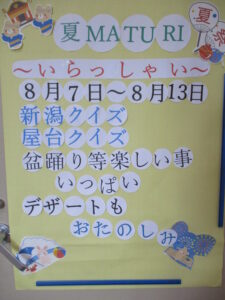 夏MATURI
～いらっしゃい～
8月7日～8月13日
新潟クイズ
屋台クイズ
盆踊り等楽しい事
いっぱい
デザートも
おたのしみ
夏